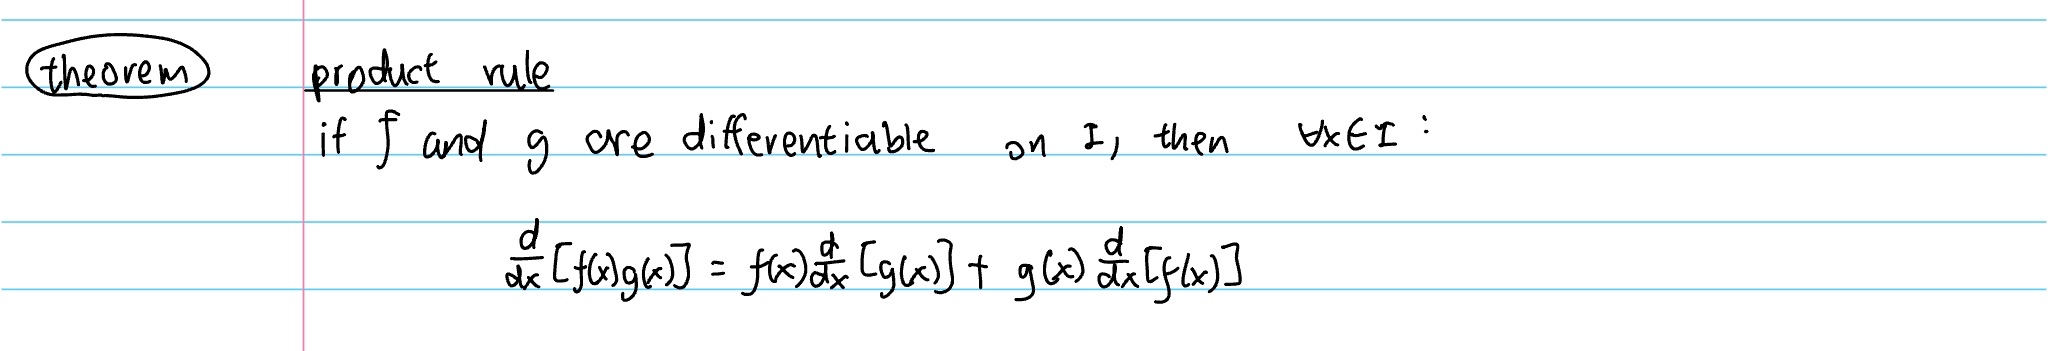 theorem product rule
if f and g are differentiable on I, then ∀x∈I :
d/dx [f(x)g(x)] = f(x) d/dx [g(x)] + g(x) d/dx [f(x)]